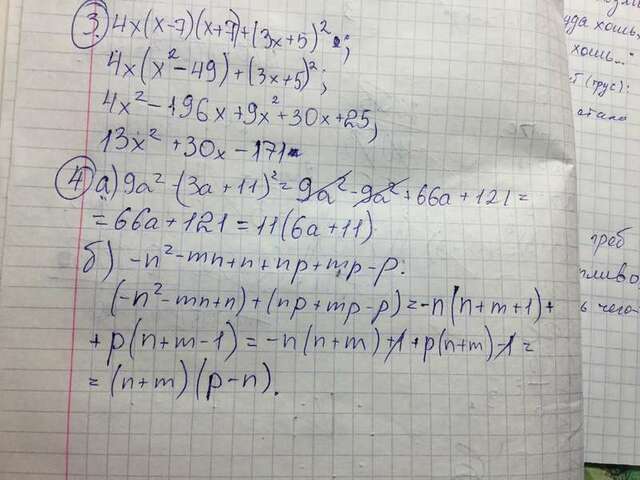 ③ 4x(x-7)(x+7)+(3x+5)²;
4x(x²-49)+(3x+5)²;
4x²-196x+9x²+30x+25;
13x²+30x-171
④ а) 9a²-(3a+11)²=9a²-9a²+66a+121=
=66a+121=11(6a+11)
б) -n²-mn+n+np+mp-p:
(-n²-mn+n)+(np+mp-p)=-n(n+m+1)+
+p(n+m-1)=-n(n+m)+1+p(n+m)-1=
=(n+m)(p-n).
уда хошь,
хошь..."
(трус):
стало
греб
пливо,
в чего-